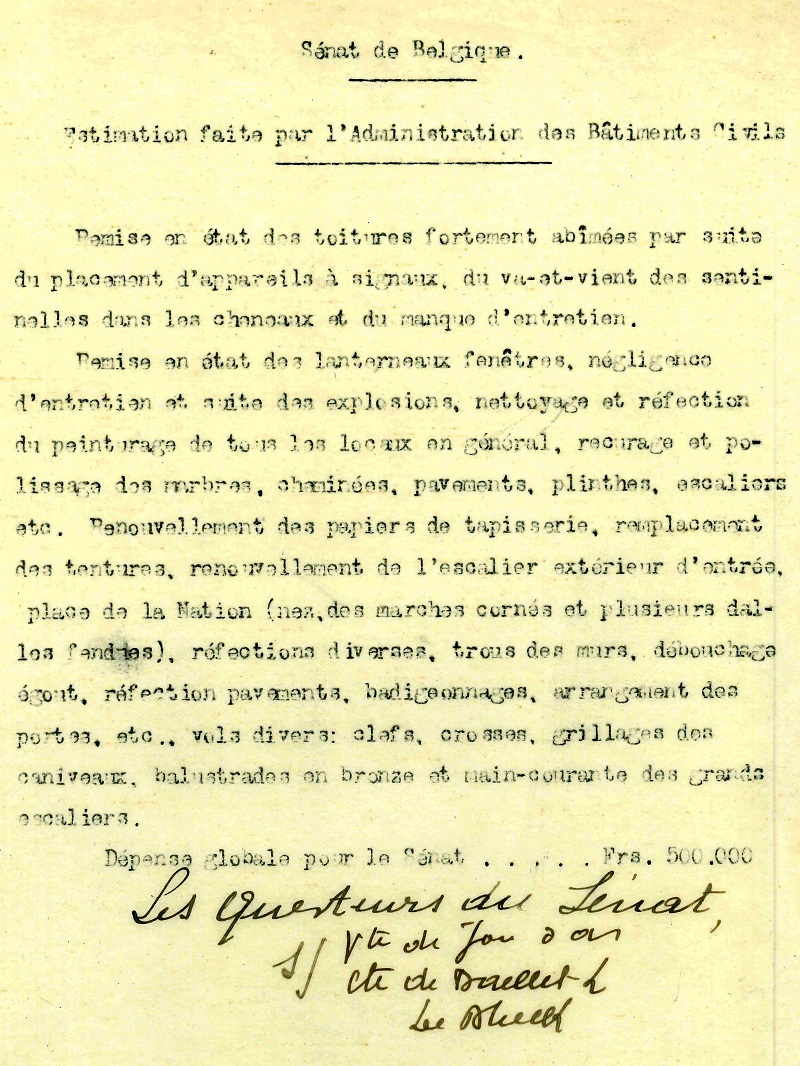 Sénat de Belgique.
Estimation faite par l'Administration des Bâtiments Civils
Remise en état des toitures fortement abîmées par suite
du placement d'appareils à signaux, du va-et-vient des senti-
nelles dans les cheneaux et du manque d'entretien.
Remise en état des lanterneaux fenêtres, négligence
d'entretien et suite des explosions, nettoyage et réfection
du peinturage de tous les locaux en général, recurage et po-
lissage des marbres, cheminées, pavements, plinthes, escaliers
etc. Renouvellement des papiers de tapisserie, remplacement
des tentures, renouvellement de l'escalier extérieur d'entrée,
place de la Nation (nez,des marches cornés et plusieurs dal-
les fendues), réfections diverses, trous des murs, débouchage
égout, réfection pavements, badigeonnages, arrangement des
portes, etc., vols divers: clefs, crosses, grillages des
caniveaux, balustrades en bronze et main-courante des grands
escaliers.
Dépense globale pour le Sénat . . . . . Frs. 500.000
Les Questeurs du Sénat,
s/ Vte de
Cte de